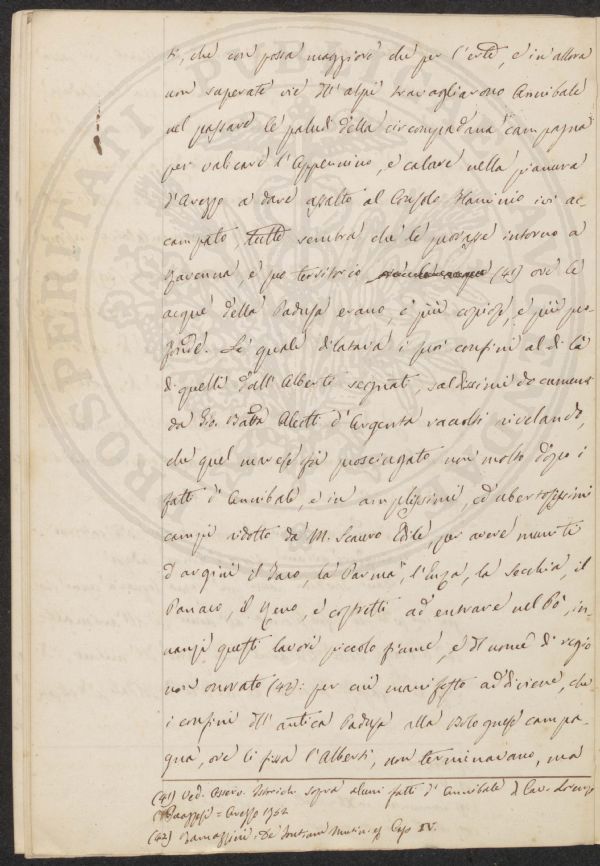 ti, che con possa maggiore che per l'erte, e in allora
non superate vie dll' alpi travagliarono Annibale
nel passare le paludi della circompadana campagna
per valicare l'Appennino, e calare nella pianura
d'Arezzo a dare assalto al Consolo Flaminio ivi ac
campato, tutte sembra che le provasse intorno a
Ravenna, e suo territorio (41) ove le
acque della Padusa erano, e più copiose, e più pro
fonde. Le quale dilatava i suoi confini al di là
di quelli dall' Alberti segnati, saldissimi documenti
da Gio. Batta Aleotti d'Argenta raccolti rivelando,
che quel marese già prosciugato non molto dopo i
fatti d'Annibale, e in amplissimi, ed ubertosissimi
campi ridotto da M. Scauro Edile, per avere muniti
d'argini il Taro, la Parma, l'Enza, la Secchia, il
Panaro, il Reno, e costretti ad entrare nel Pò, in
nanzi questi lavori piccolo fiume, e dl nome di regio
non onorato (42): per cui manifesto addiviene, che
i confini dll' antica Padusa alla Bolognese campa
gna, ove li fissa l'Alberti, non terminavano, ma
(41) Ved. Osserv. Istoriche sopra alcuni fatti d'Annibale dl Cav. Lorenzo
Guazzesi = Arezzo 1752
(42) Ramazzini: De Fontium Mutin: Cap IV.
PROSPERITATI PUBLICAE